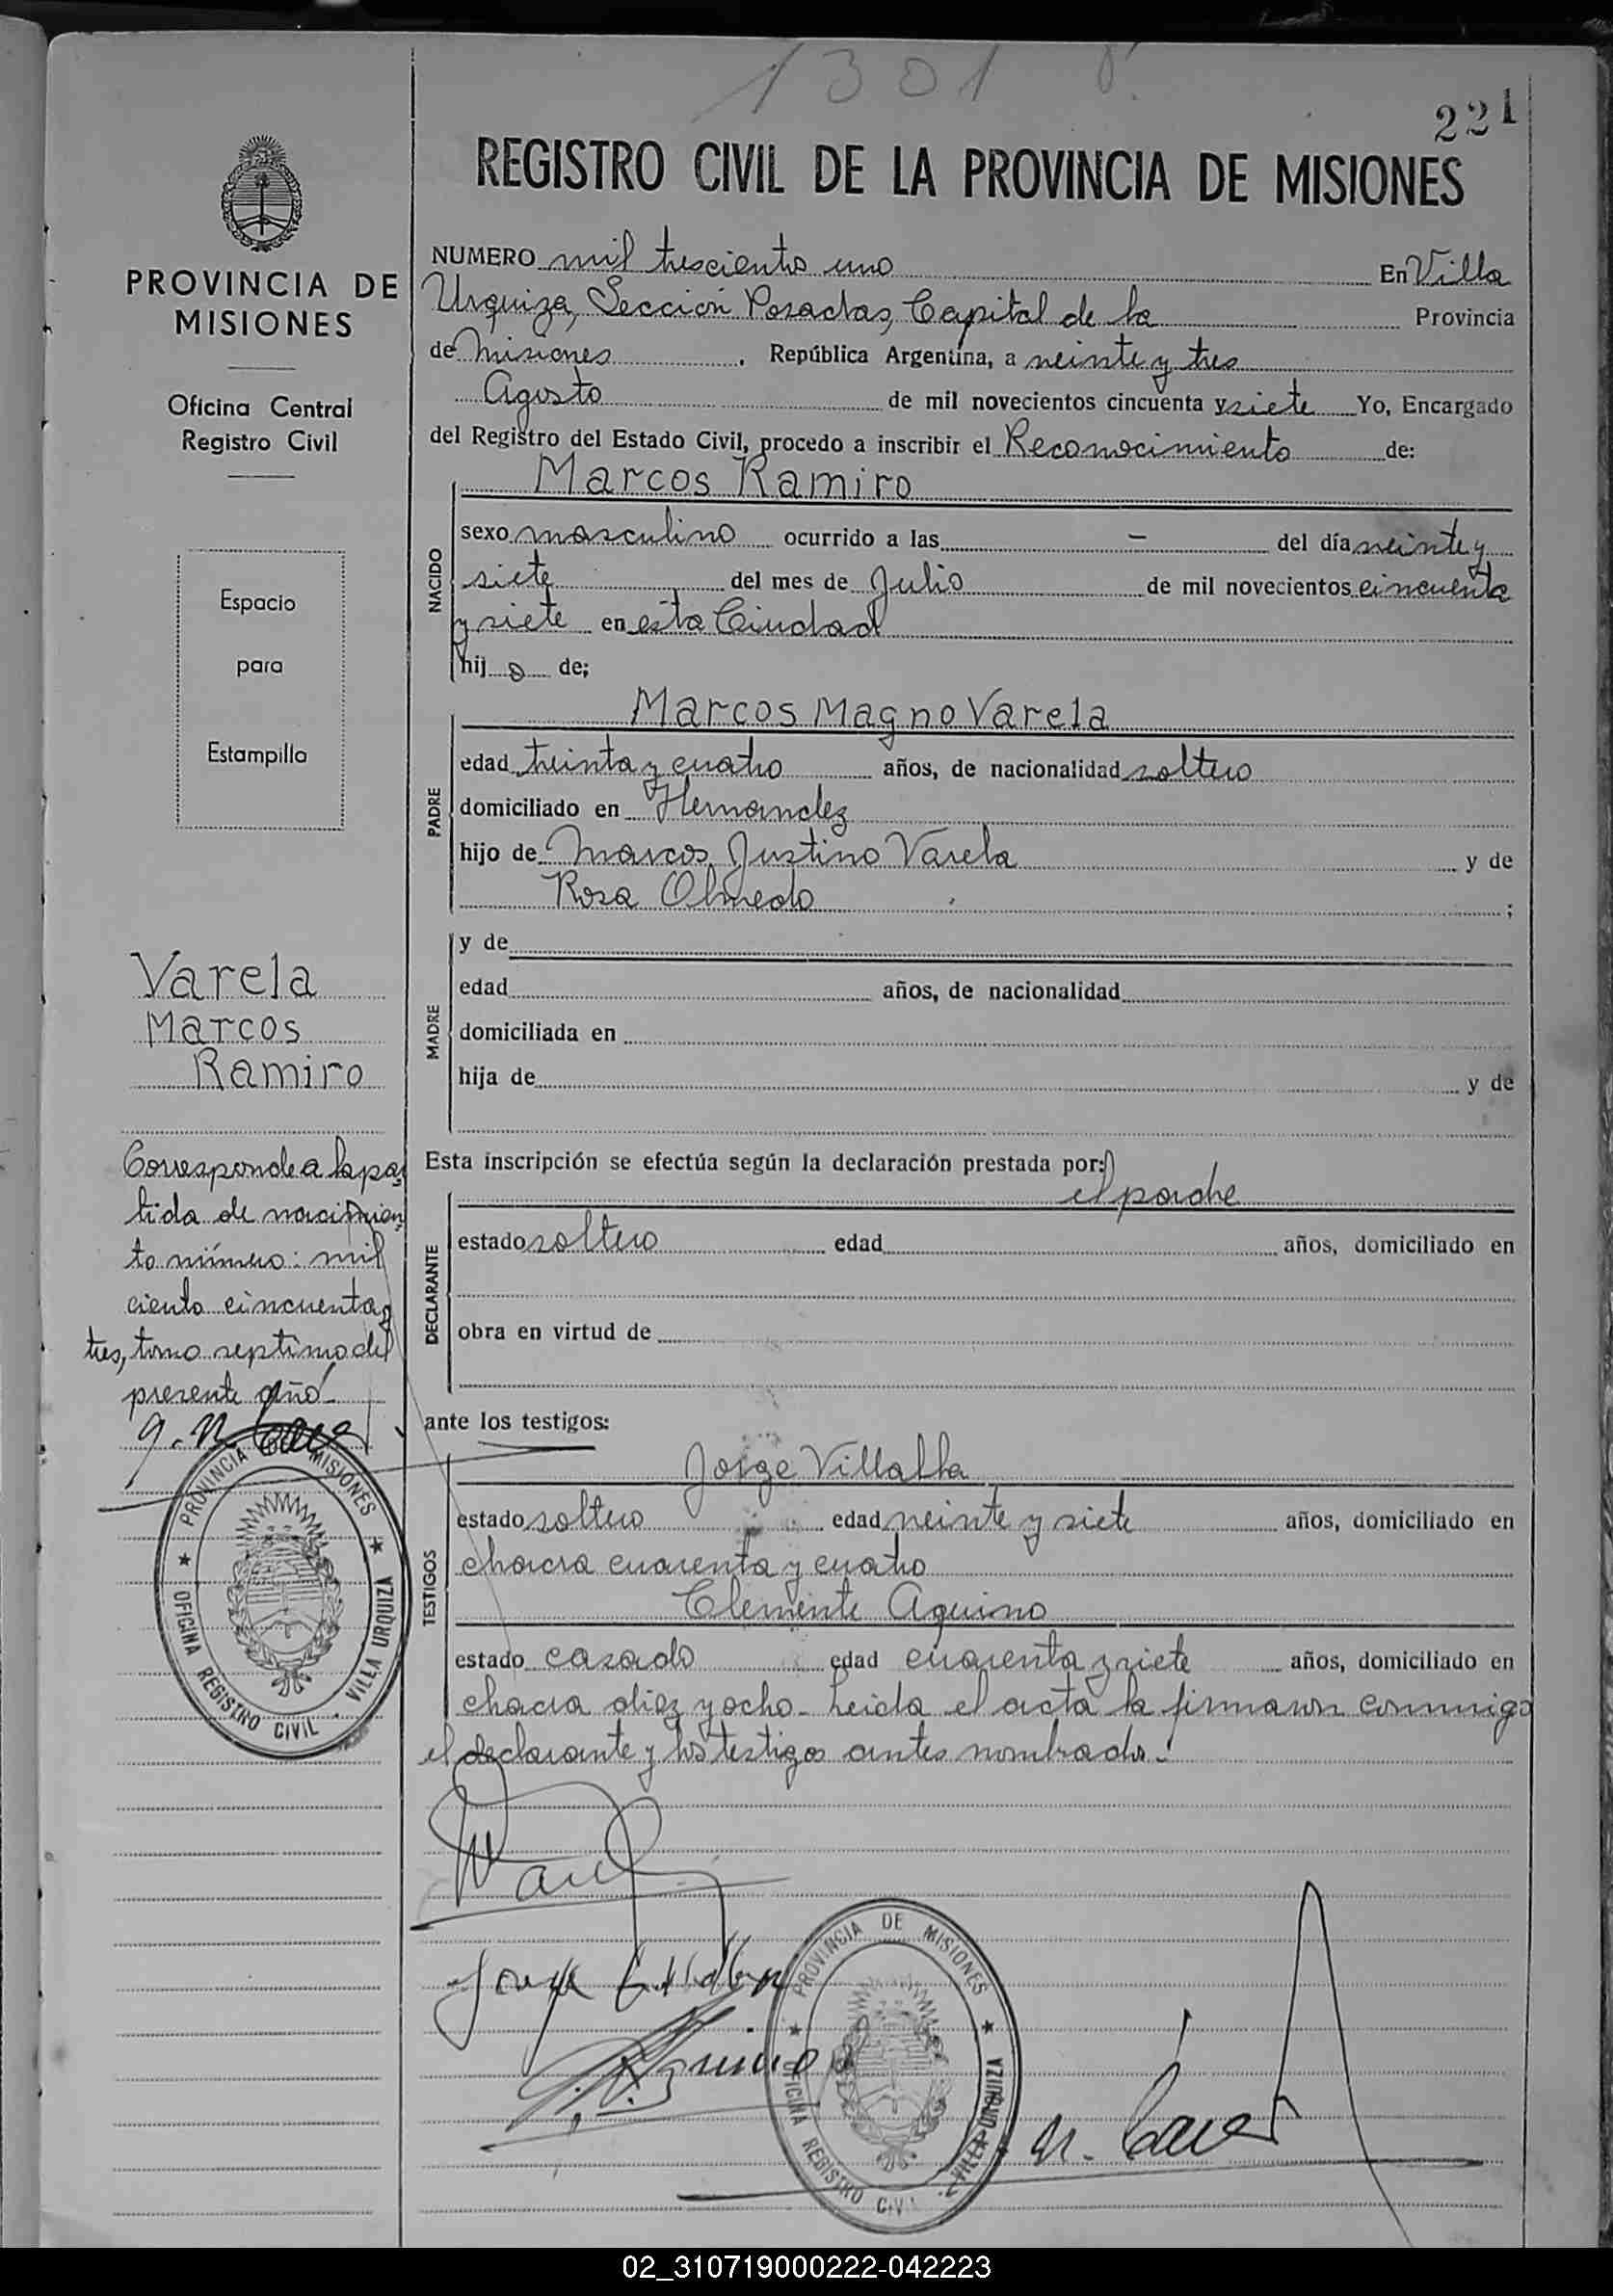 1301
221
REGISTRO CIVIL DE LA PROVINCIA DE MISIONES
PROVINCIA DE
MISIONES
Oficina Central
Registro Civil
Espacio
para
Estampilla
Varela
Marcos
Ramiro
Corresponde a la par
tida de nacimien
to número: mil
ciento cincuenta y
tres, tomo septimo del
presente año.
PROVINCIA MISIONES
OFICINA REGISTRO CIVIL VILLA URQUIZA
NUMERO mil trescientos uno En Villa
Urquiza, Sección Posadas, Capital de la Provincia
de Misiones, República Argentina, a veinte y tres
Agosto de mil novecientos cincuenta y siete Yo, Encargado
del Registro del Estado Civil, procedo a inscribir el Reconocimiento de:
Marcos Ramiro
NACIDO
sexo masculino ocurrido a las - del día veinte y
siete del mes de Julio de mil novecientos cincuenta
y siete en esta Ciudad
hijo de;
Marcos Magno Varela
PADRE
edad treinta y cuatro años, de nacionalidad soltero
domiciliado en Hernandez
hijo de Marcos Justino Varela y de
Rosa Olmedo ;
MADRE
y de
edad años, de nacionalidad
domiciliada en
hija de y de
Esta inscripción se efectúa según la declaración prestada por:
el padre
DECLARANTE
estado soltero edad años, domiciliado en
obra en virtud de
ante los testigos:
Jorge Villalba
TESTIGOS
estado soltero edad veinte y siete años, domiciliado en
chacra cuarenta y cuatro
Clemente Aquino
estado casado edad cuarenta y siete años, domiciliado en
chacra diez y ocho. Leida el acta la firmaron conmigo
el declarante y los testigos antes nombrados.
PROVINCIA DE MISIONES
OFICINA REGISTRO CIVIL VILLA URQUIZA
02_310719000222-042223